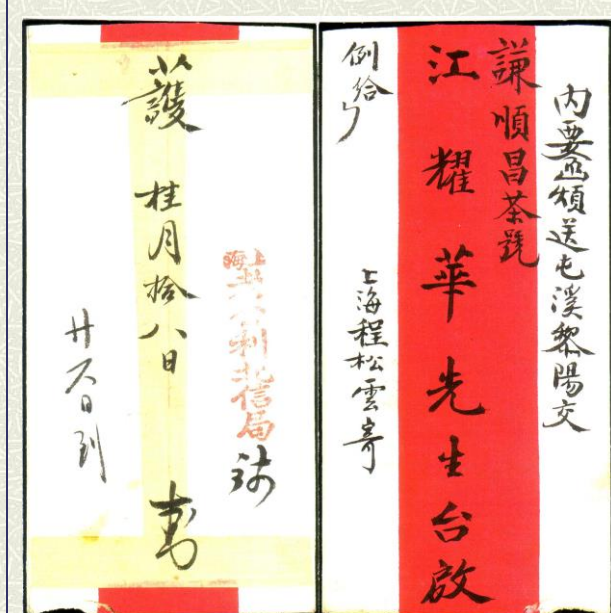 内要函煩送屯溪黎陽交
謙順昌茶號
江耀華先生台啟
上海程松雲寄
例給
護
桂月拾八日
上海
利北信局
廿六日到